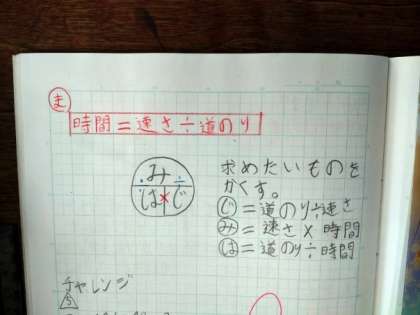 ま
時間=速さ÷道のり
み
÷ ÷
は×じ
求めたいものを
かくす。
じ=道のり÷速さ
み=速さ×時間
は=道のり÷時間
チャレンジ
5